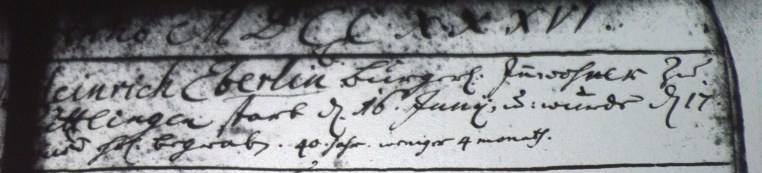 Anno MDCCXXXVI.
Heinrich Eberlin burgerl. Innwohner zu
ttlingen starb d. 16 Junij, u: wurde d 17
begrab. 40. Jahr. weniger 4 monath.